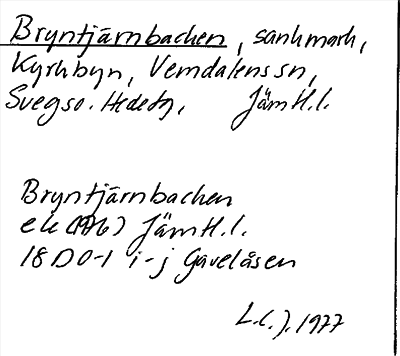 Bryntjärnbacken, sankmark,
Kyrkbyn, Vemdalens sn,
Svegs o. Hedetg, Jämtl.l.
Bryntjärnbacken
ek (1976) Jämtl.l.
18D 0-1 i-j Gavelåsen
L.C.J. 1977